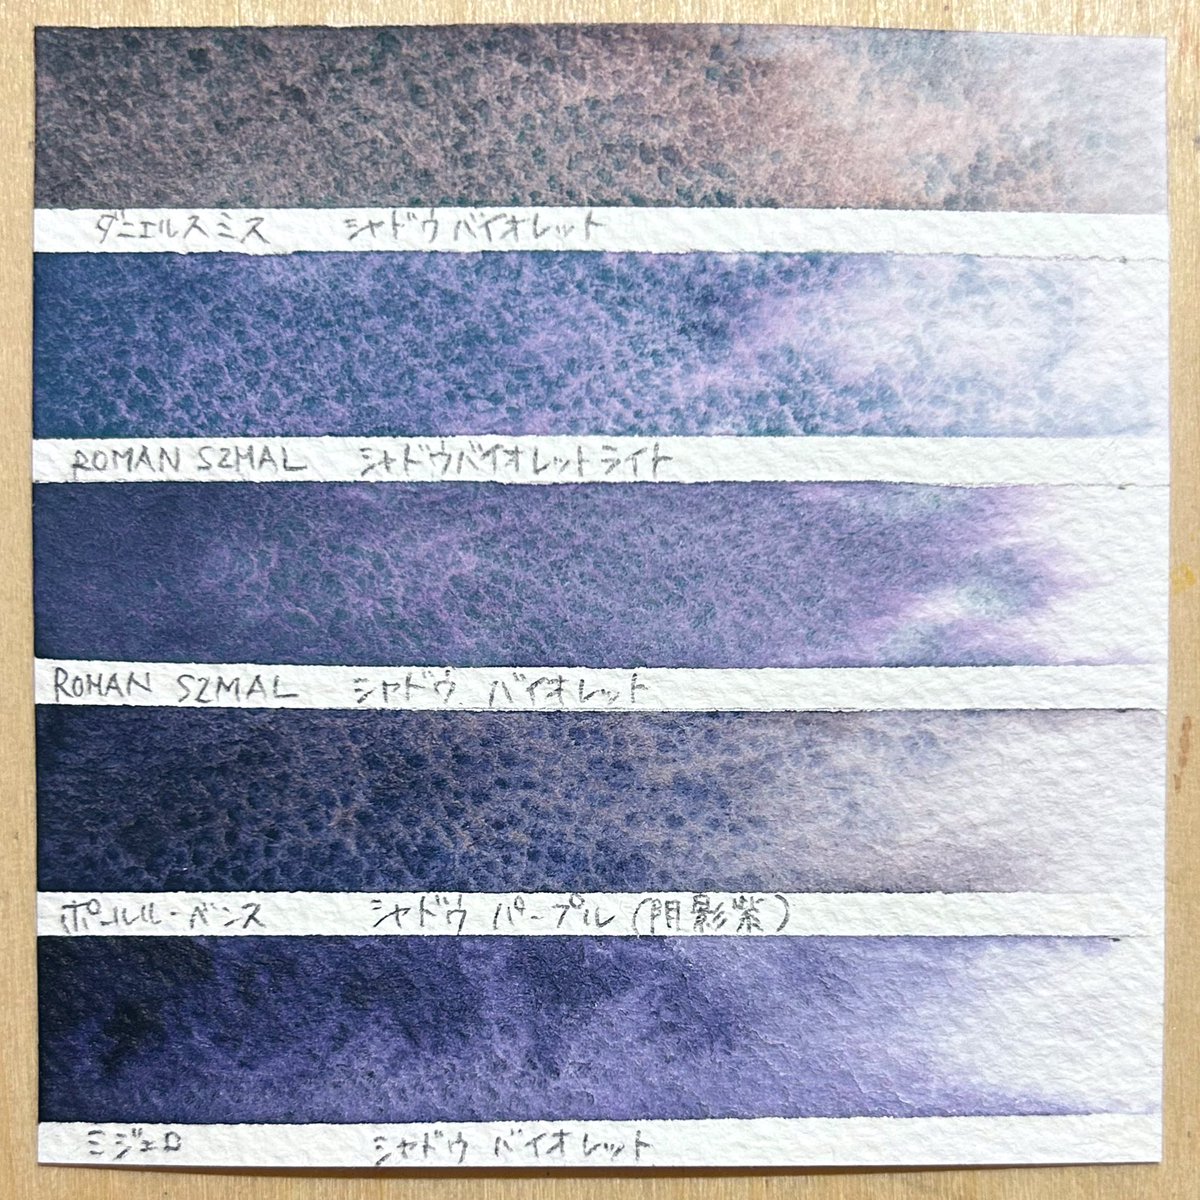 ダニエルスミス シャドウバイオレット
ROMAN SZMAL シャドウバイオレットライト
ROMAN SZMAL シャドウ バイオレット
ポールルーベンス シャドウ パープル(阴影紫)
ミジェロ シャドウ バイオレット